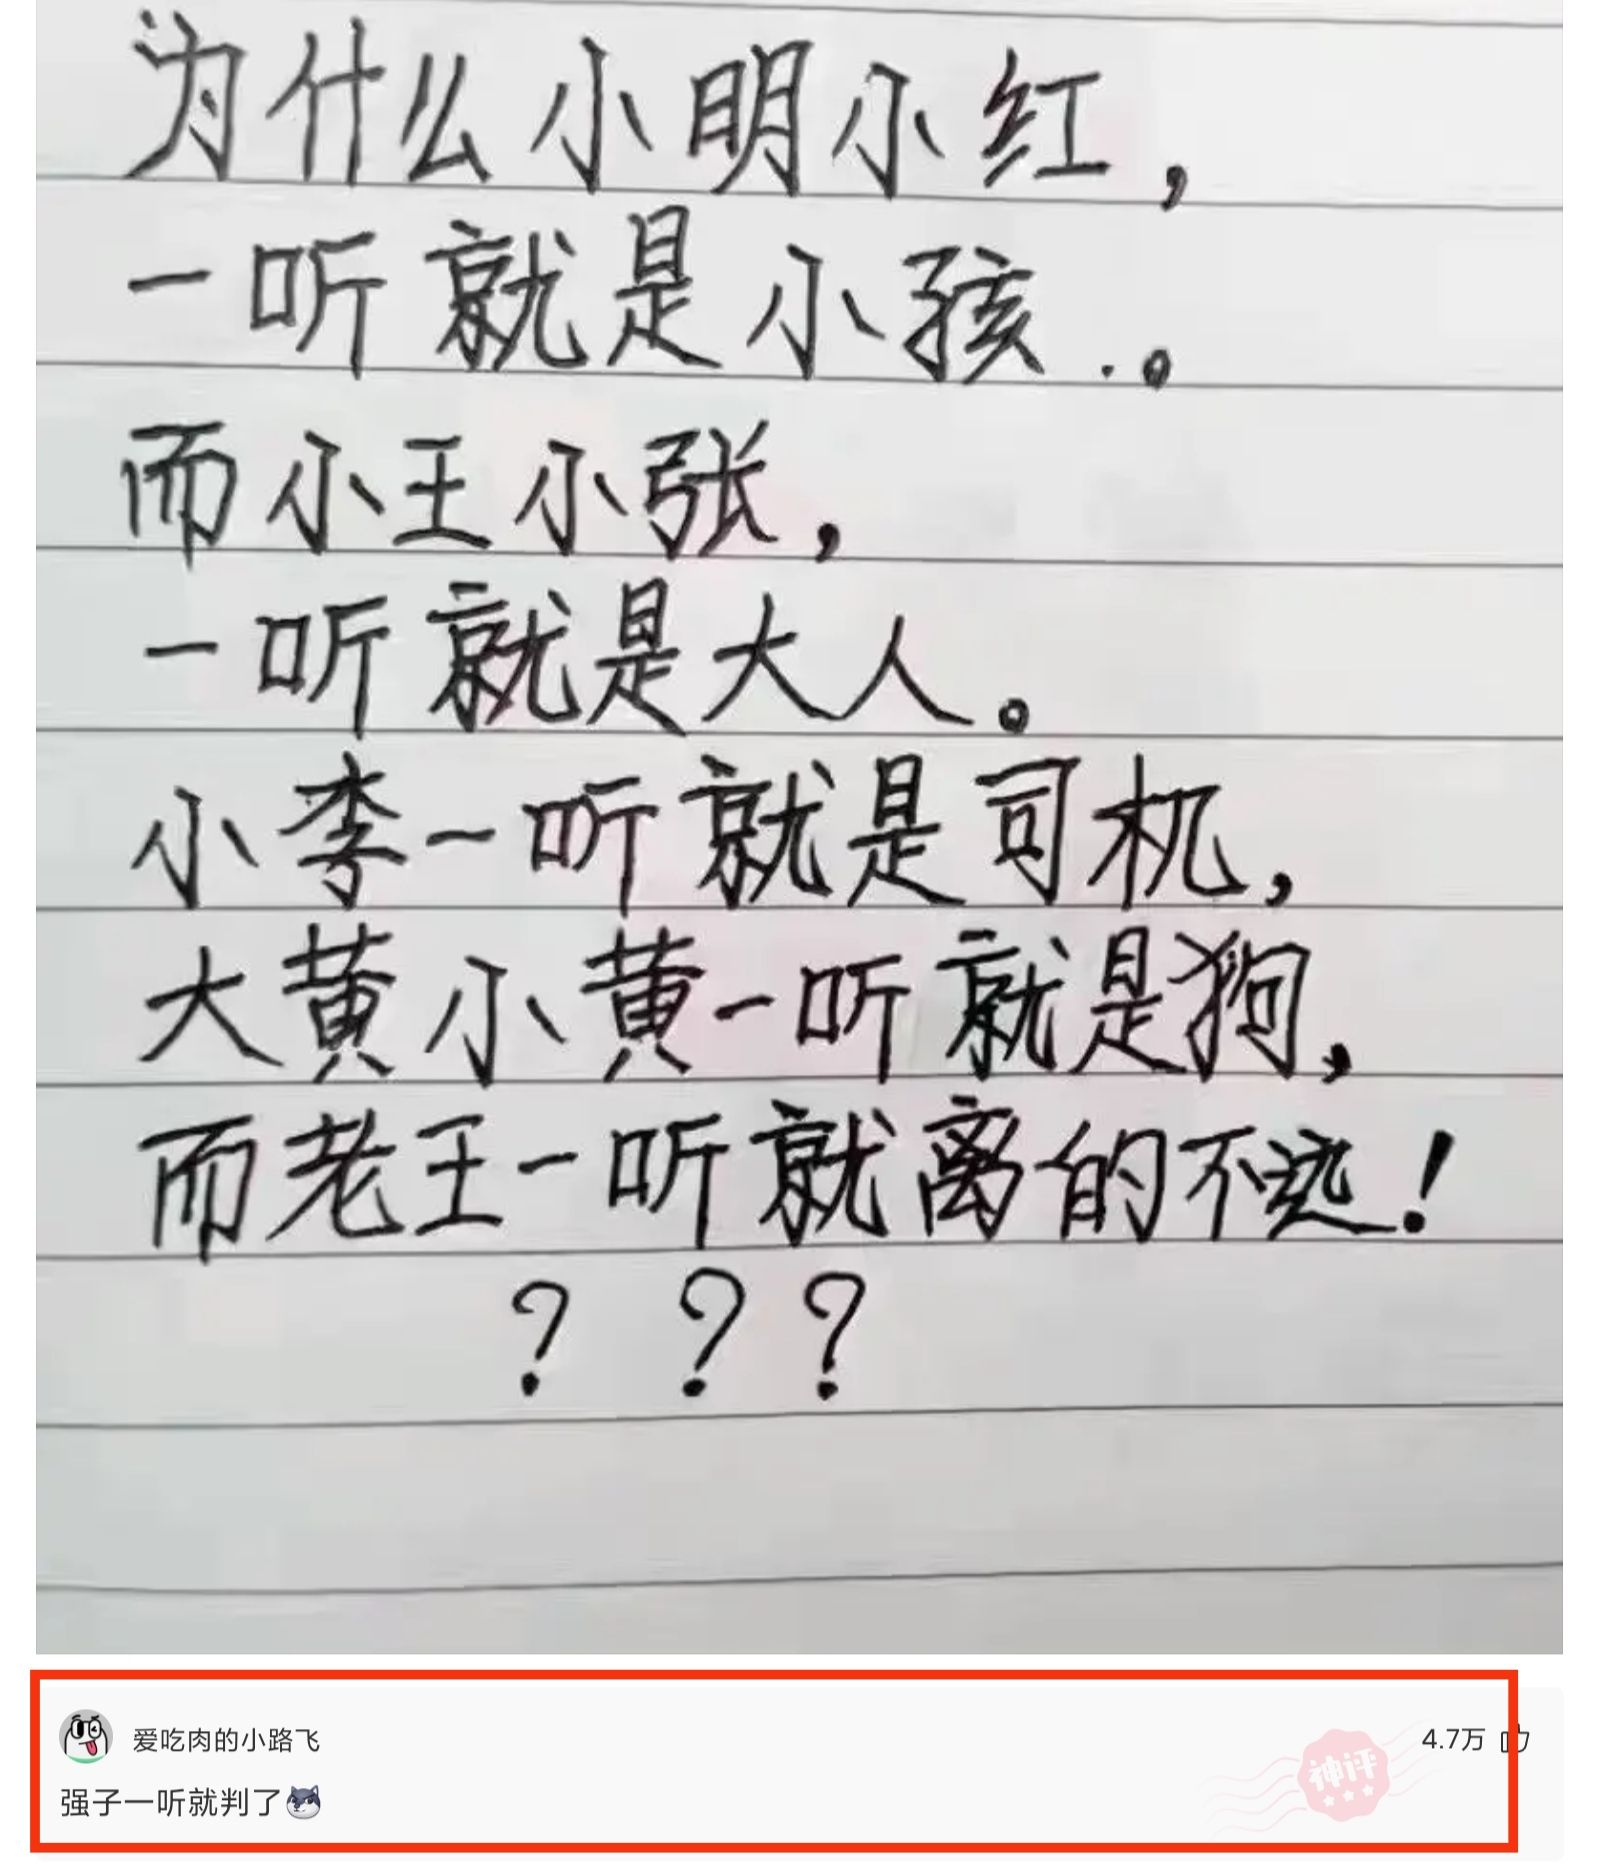 为什么小明小红，
一听就是小孩．。
而小王小张，
一听就是大人。
小李一听就是司机，
大黄小黄一听就是狗，
而老王一听就离的不远！
？？？
爱吃肉的小路飞
4.7万
神评
强子一听就判了